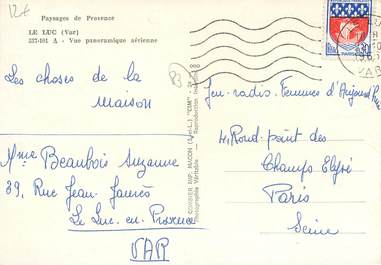 12€
Paysages de Provence
LE LUC (Var)
337-101 A - Vue panoramique aérienne
Les choses de la
maison
Mme Beaubois Suzanne
39, Rue Jean Jaurès
Le Luc en Provence
VAR
COMBIER IMP. MACON (S.-et-L.) "CIM"
Photographie Véritable - Reproduction
Jeu radio. Femmes d'Aujourd'hui
4, Rond-point des
Champs Elysé
Paris
Seine
PARIS
VAR